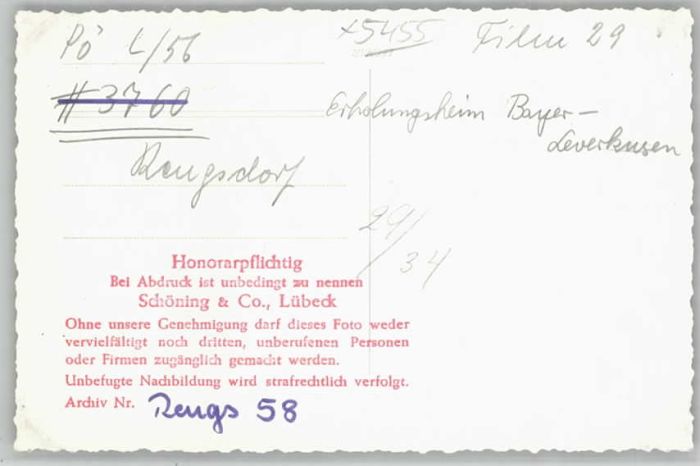 Pö L/56
x5455 Film 29
#3760
Erholungsheim Bayer-
Leverkusen
Rengsdorf
29/
34
Honorarpflichtig
Bei Abdruck ist unbedingt zu nennen
Schöning & Co., Lübeck
Ohne unsere Genehmigung darf dieses Foto weder
vervielfältigt noch dritten, unberufenen Personen
oder Firmen zugänglich gemacht werden.
Unbefugte Nachbildung wird strafrechtlich verfolgt.
Archiv Nr. Rengs 58